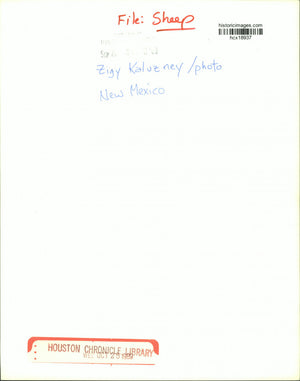 File: Sheep
historicimages.com
hcx18937
Zigy Kaluzney/photo
New Mexico
HOUSTON CHRONICLE LIBRARY
OCT 20